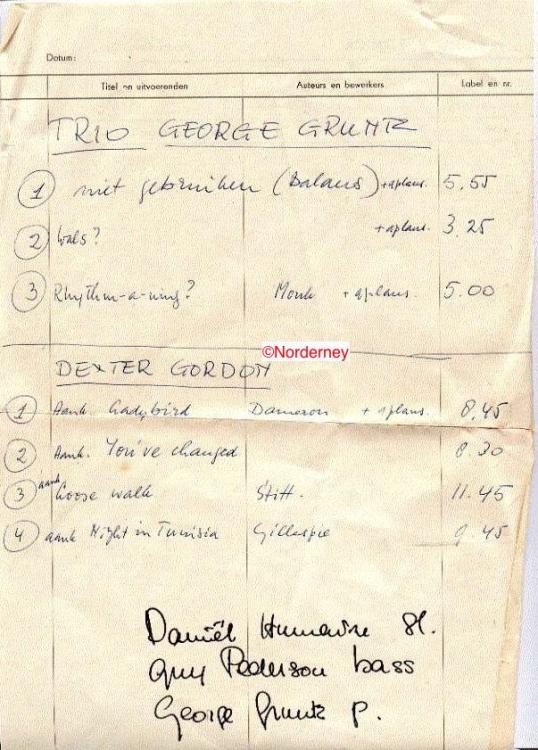 Datum:
Titel en uitvoerenden Auteurs en bewerkers Label en nr.
TRIO GEORGE GRUNTZ
1 niet gebruiken (Balans) + aplaus. 5.55
2 Wals? + aplaus. 3.25
3 Rhythm-a-ning? Monk + aplaus. 5.00
©Norderney
DEXTER GORDON
1 Aank. Ladybird Dameron + aplaus. 8.45
2 Aank. You've changed 8.30
3 aank Loose walk Stitt. 11.45
4 aank Night in Tunisia Gillespie 9.45
Daniël Humaire Sl.
Guy Pederson bass
George Gruntz p.